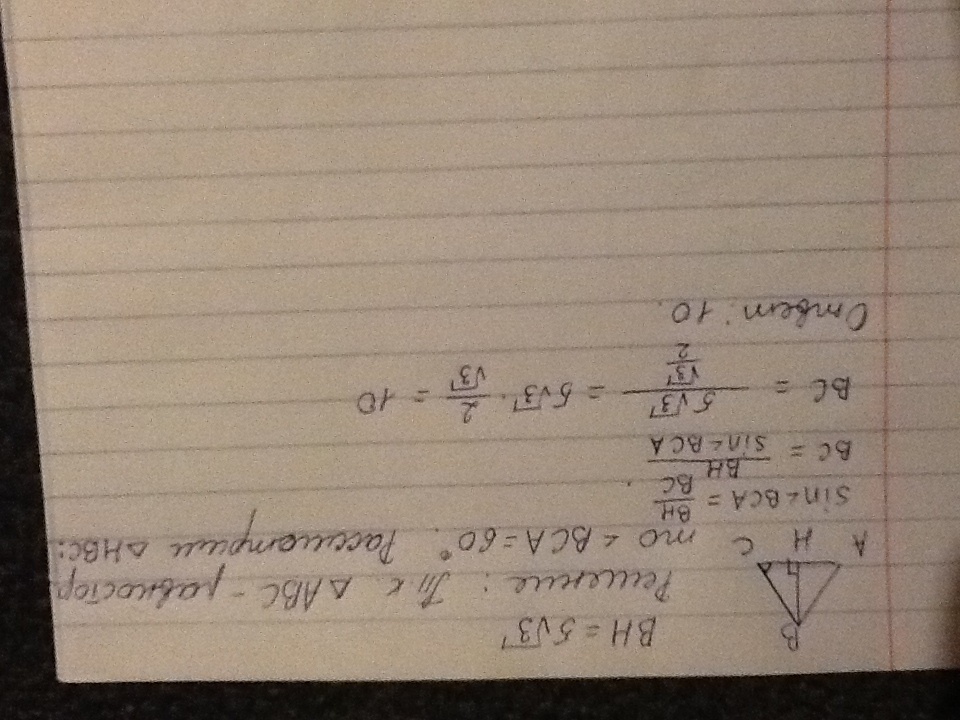 B
BH = 5√3
Решение: Т.к ΔABC - равностор
A H C то <BCA = 60°. Рассмотрим ΔHBC:
sin<BCA = BH/BC.
BC = BH/sin<BCA
BC = 5√3/(√3/2) = 5√3 · 2/√3 = 10
Ответ: 10.